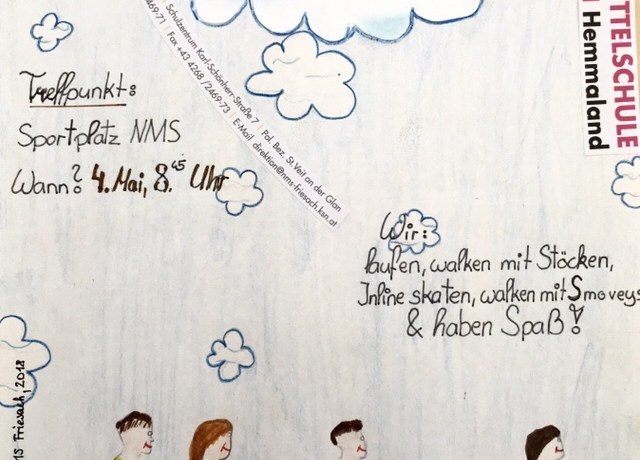 Treffpunkt:
Sportplatz NMS
Wann? 4. Mai, 8.45 Uhr
Schulzentrum Karl-Schönherr-Straße 7 | Pol. Bez. St. Veit an der Glan
2469-71 | Fax +43 4268 / 2469-73 | E-Mail direktion@nms-friesach.ksn.at
TTELSCHULE
Hemmaland
Wir:
laufen, walken mit Stöcken,
Inline skaten, walken mit Smoveys
& haben Spaß!
MS Friesach, 2018